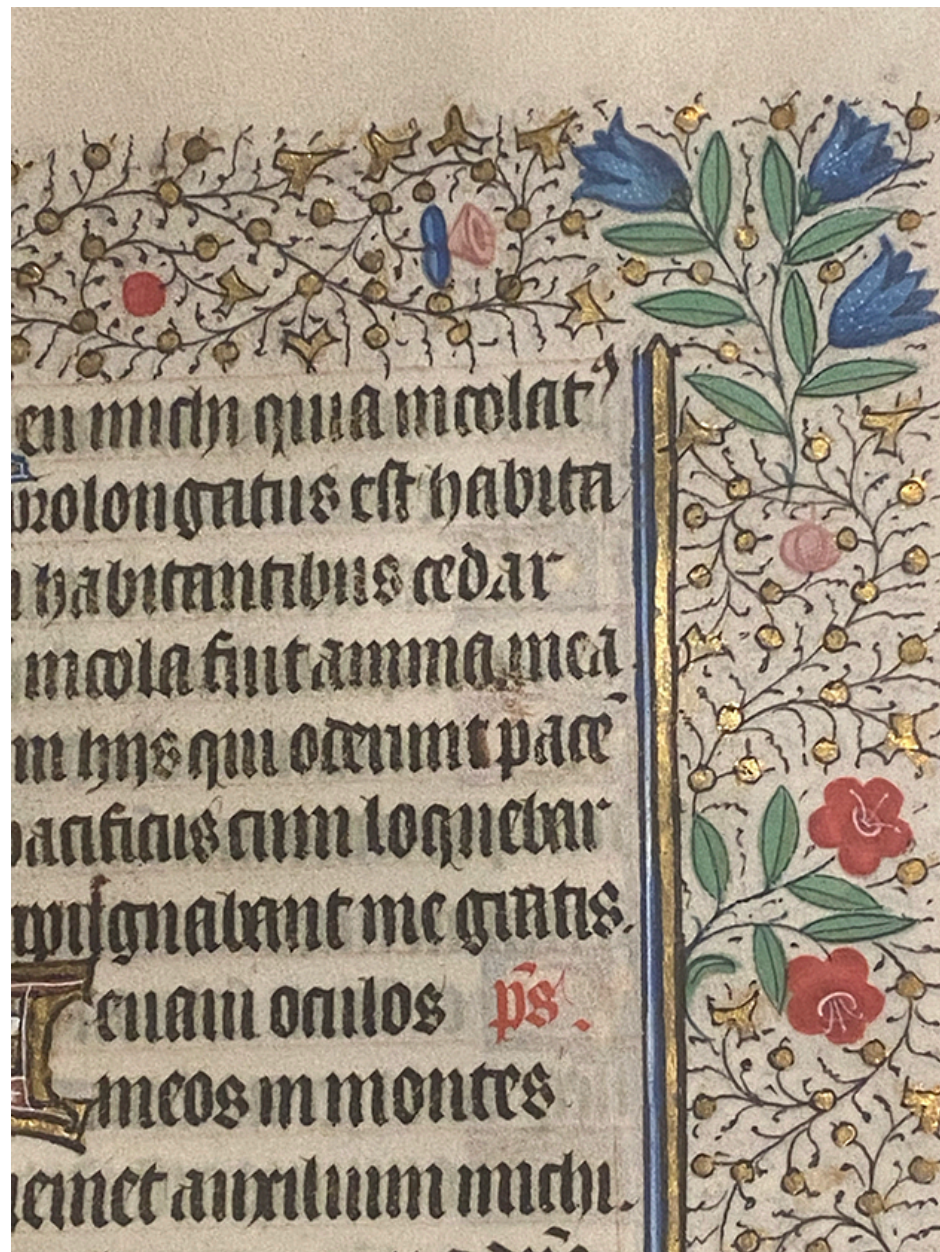 eu michi quia incolat⁹
prolongatus est habita
habitantibus cedar
incola fuit anima mea
hijs qui oderunt pacē
pacificus cum loquebar
pugnabant me gratis.
Leuaui oculos p̄s.
meos in montes
ueniet auxilium michi.